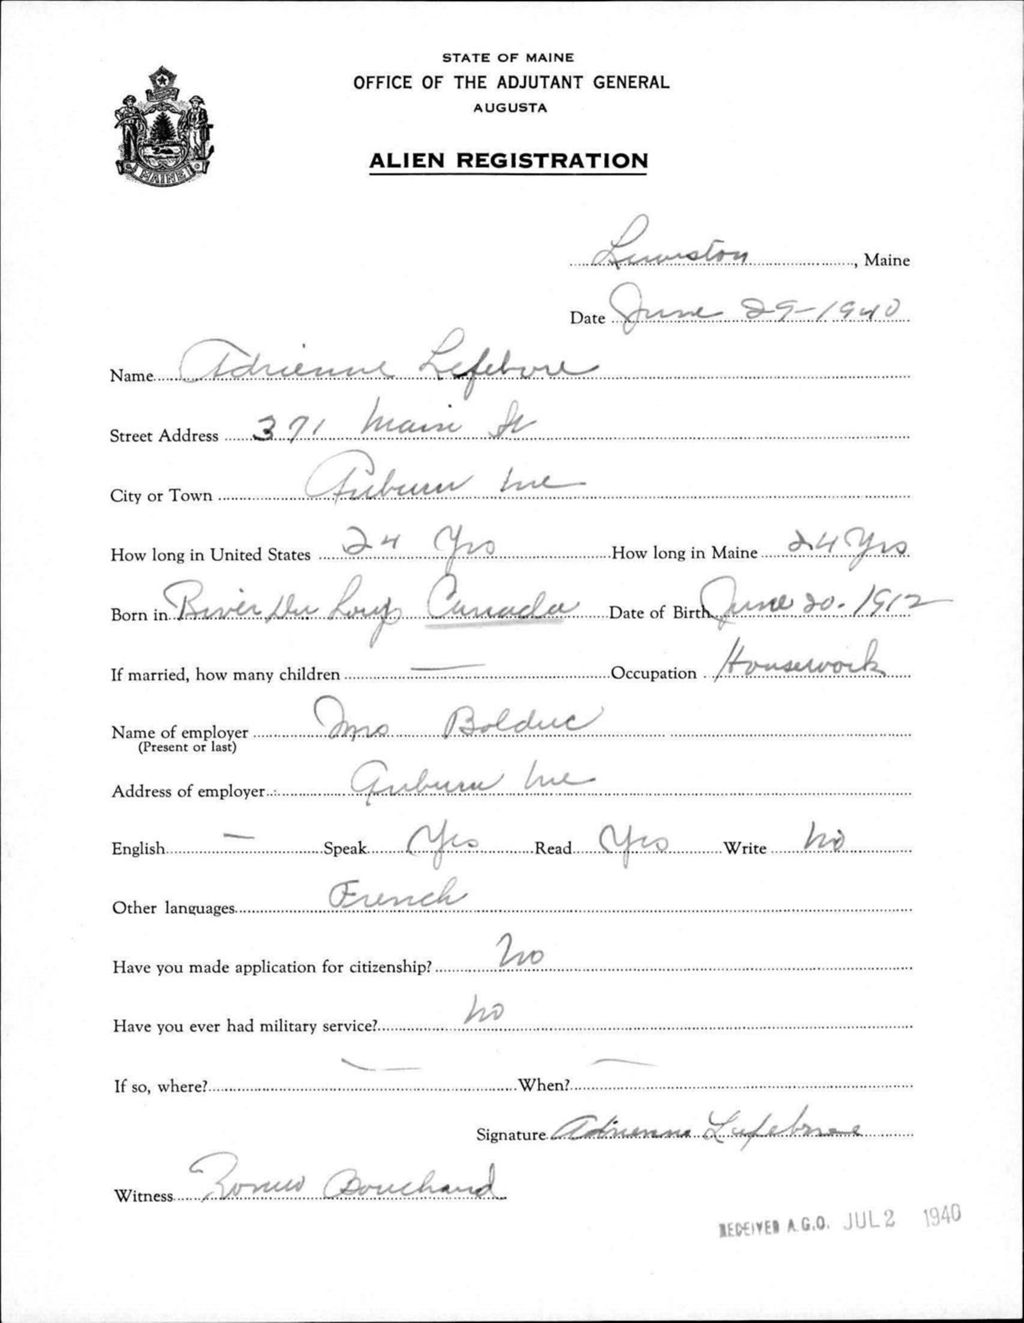 STATE OF MAINE
OFFICE OF THE ADJUTANT GENERAL
AUGUSTA
ALIEN REGISTRATION
MAINE
Lewiston, Maine
Date June 29-1940
Name Adrienne Lefebvre
Street Address 371 Main St
City or Town Auburn Me
How long in United States 24 Yrs How long in Maine 24 Yrs
Born in River Du Loup Canada Date of Birth June 20. 1912
If married, how many children — Occupation Housework
Name of employer Mrs Bolduc
(Present or last)
Address of employer Auburn Me
English — Speak Yes Read Yes Write No
Other languages French
Have you made application for citizenship? No
Have you ever had military service? No
If so, where? — When? —
Signature Adrienne Lefebvre
Witness Romeo Bouchard
RECEIVED A.G.O. JUL 2 1940